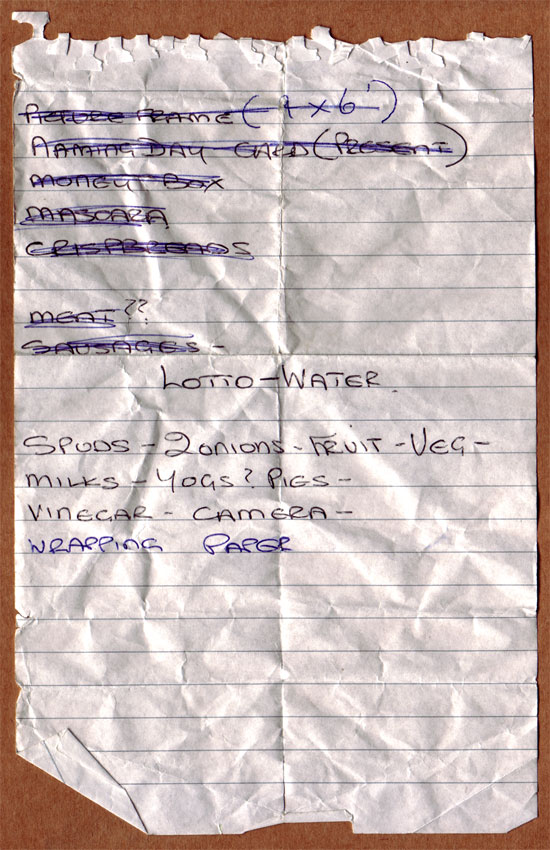 PICTURE FRAME (9 x 6")
NAMING DAY CARD (PRESENT)
MONEY BOX
MASCARA
CRISPBREADS
MEAT??
SAUSAGES -
LOTTO - WATER.
SPUDS - 2 ONIONS - FRUIT - VEG -
MILKS - YOGS? PIES -
VINEGAR - CAMERA -
WRAPPING PAPER